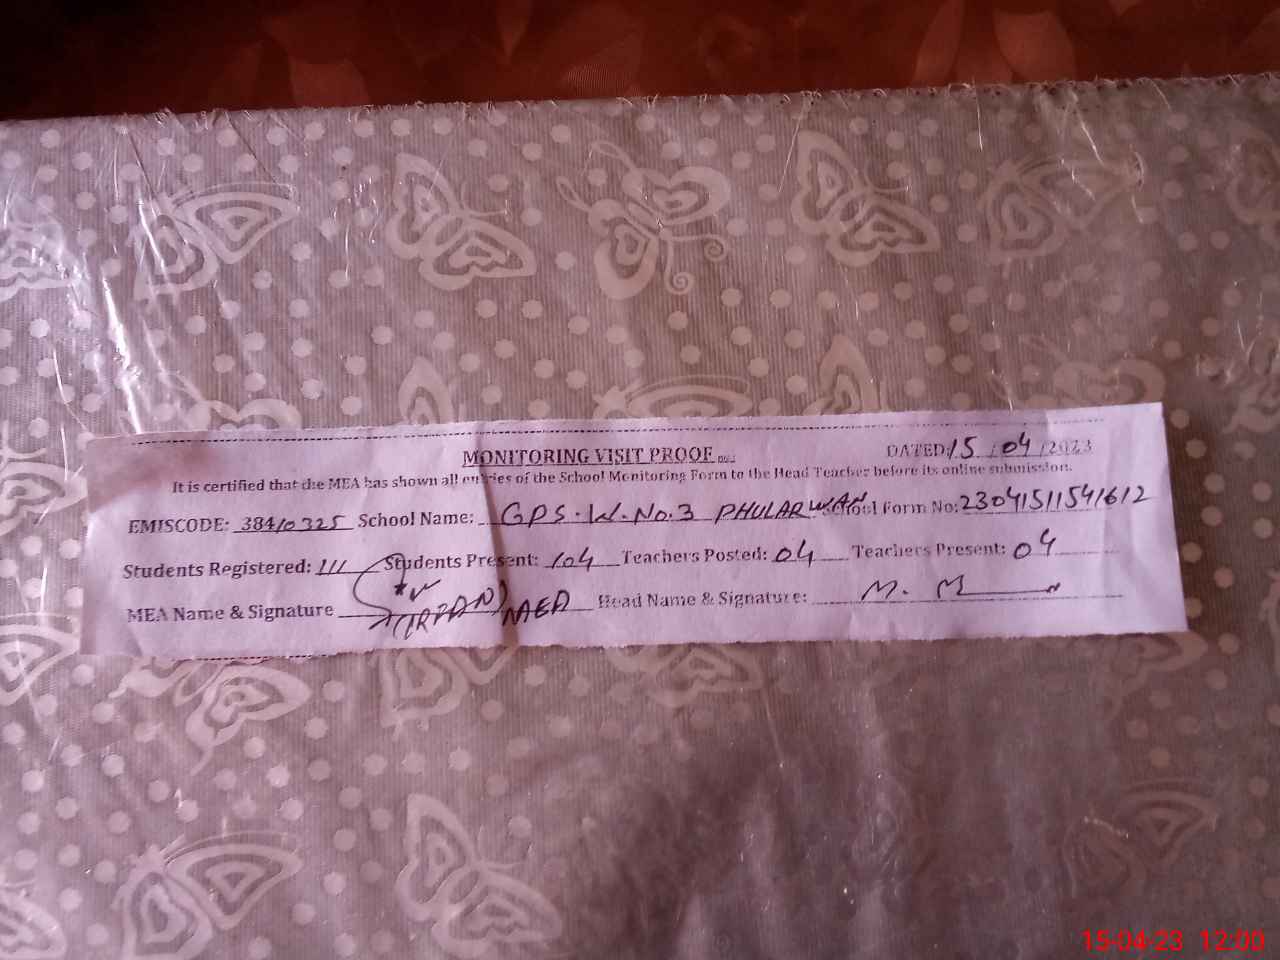 MONITORING VISIT PROOF
DATED: 15 / 04 / 2023
It is certified that the MEA has shown all entries of the School Monitoring Form to the Head Teacher before its online submission.
EMISCODE: 38410325 School Name: GPS. W. No. 3 PHULARWAN School Form No: 23041511541612
Students Registered: 111 Students Present: 104 Teachers Posted: 04 Teachers Present: 04
MEA Name & Signature (IRFAN) MEA Head Name & Signature:
15-04-23 12:00